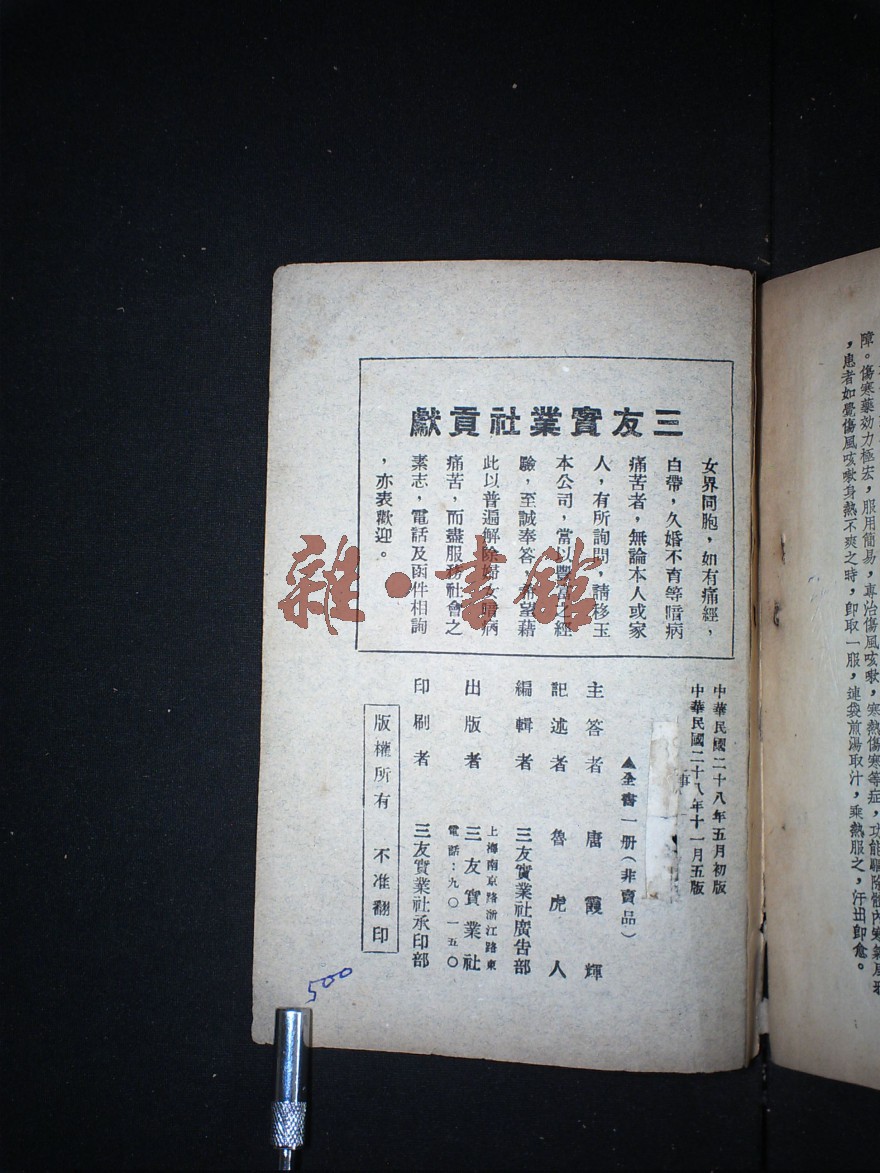 障。傷寒藥効力極宏，服用簡易，專治傷風咳嗽，寒熱傷寒等症，功能驅除體內寒氣風邪
，患者如覺傷風咳嗽身熱不爽之時，卽取一服，連袋煎湯取汁，乘熱服之，汗出卽愈。
三友實業社貢獻
女界同胞，如有痛經，
白帶，久婚不育等暗病
痛苦者，無論本人或家
人，有所詢問，請移玉
本公司，當以豐富之經
驗，至誠奉答，希望藉
此以普遍解除婦女暗病
痛苦，而盡服務社會之
素志，電話及函件相詢
，亦表歡迎。
中華民國二十八年五月初版
中華民國二十八年十一月五版
▲全書一册（非賣品）
主答者 唐霞輝
記述者 魯虎人
編輯者 三友實業社廣告部
出版者 三友實業社
上海南京路浙江路東
電話：九〇一五〇
印刷者 三友實業社承印部
版權所有 不准翻印
500
雜·書館